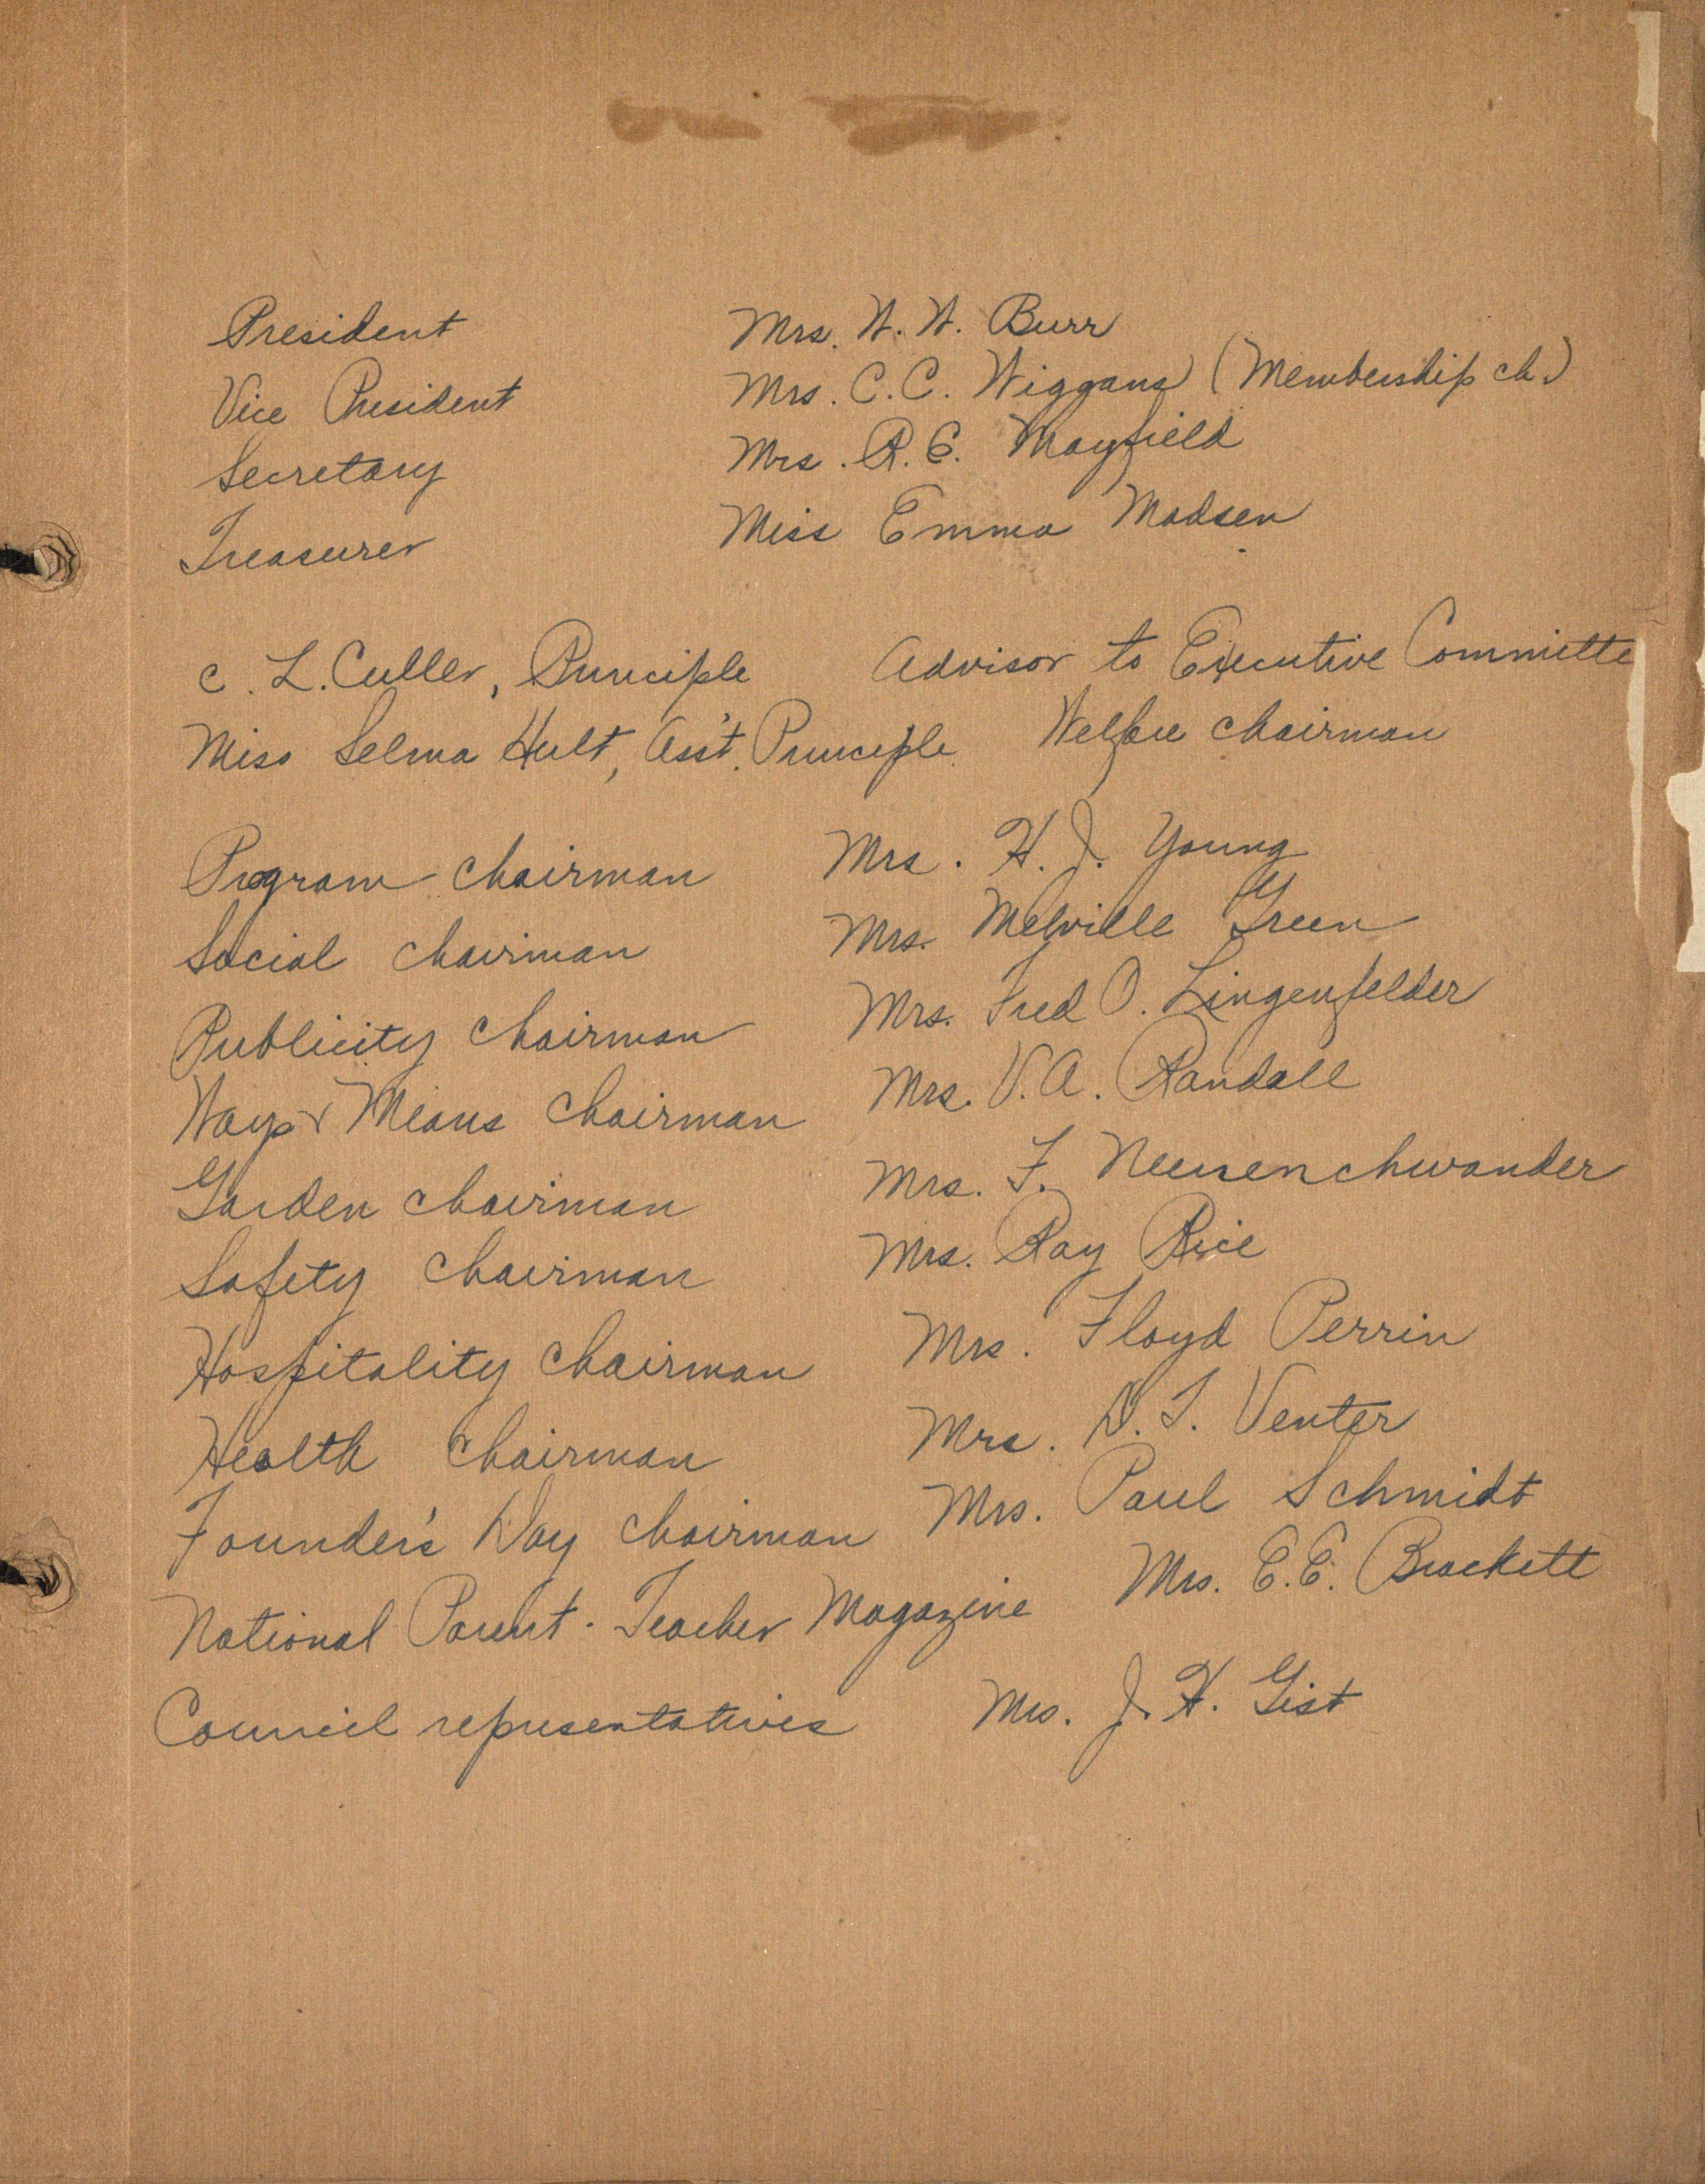 President Mrs. W. W. Burr
Vice President Mrs. C. C. Wiggans (Membership ch.)
Secretary Mrs. R. E. Mayfield
Treasurer Miss Emma Madsen
C. L. Culler, Principle Advisor to Executive Committe
Miss Selma Hult, Ass't. Principle Welfare Chairman
Program Chairman Mrs. H. J. Young
Social Chairman Mrs. Melville Green
Publicity Chairman Mrs. Fred O. Lingenfelder
Ways & Means Chairman Mrs. V. A. Randall
Garden Chairman Mrs. F. Neuenchwander
Safety Chairman Mrs. Ray Rice
Hospitality Chairman Mrs. Floyd Perrin
Health Chairman Mrs. D. T. Venter
Founder's Day Chairman Mrs. Paul Schmidt
National Parent-Teacher Magazine Mrs. E. E. Brackett
Council representatives Mrs. J. H. Gist